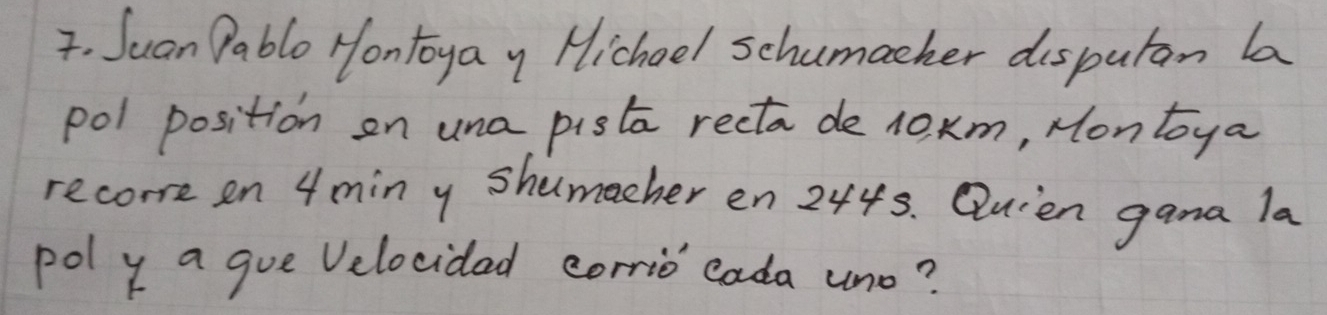 7. Juan Pablo Montoya y Michael schumacher disputan la
pol position en una pista recta de 10 Km, Montoya
recorre en 4 min y shumacher en 244 s. Quien gana la
pol y a que velocidad corrió cada uno?